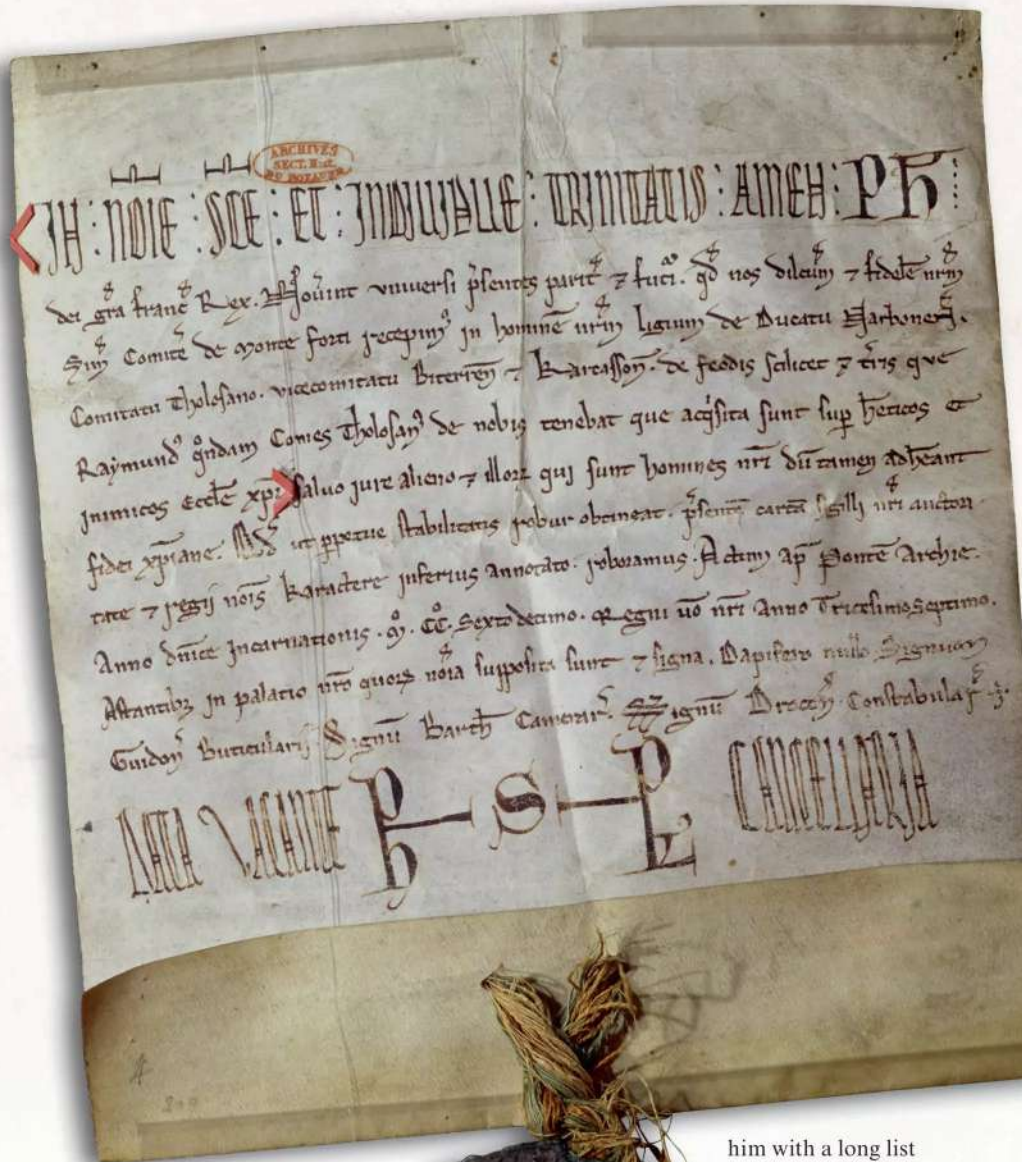 ARCHIVES
SECT. Hist.
DU ROYAUME
IN : NOIE : SCE : ET : INDIVIDUE : TRINITATIS : AMEN : Ph
dei gra franc Rex. Noverint universi psentes parit ⁊ futi. qd nos dilcum ⁊ fidele nrm
Sim Comite de Monte forti recepim⁹ in homine nrm ligium de Ducatu Narbone.
Comitatu Tholosano. vicecomitatu Biterren ⁊ Karcasson. de feodis scilicet ⁊ tris que
Raymund⁹ qndam Comes Tholosan⁹ de nobis tenebat que acqsita sunt sup heticos et
inimicos Eccle xpi salvo iure alieno ⁊ illorꝝ qui sunt homines nri du tamen adheant
fidei xpiane. Qd ut ppetue stabilitatis robur obtineat. psente carta sigilli nri auctori
tate ⁊ regii nois karactere inferius annotato. roboramus. Actum ap Ponte Archie.
Anno dnice Incarnationis. M. CC. Sextodecimo. Regni vo nri Anno Tricesimoseptimo.
Astantibꝫ in palatio nro quorꝝ noia supposita sunt ⁊ signa. Dapifero nullo. Signum
Guidon Buticularii Signu Barth Camerar. Signu Drocon Constabular
DATA VACANTE Ph S CANCELLARIA
4
him with a long list